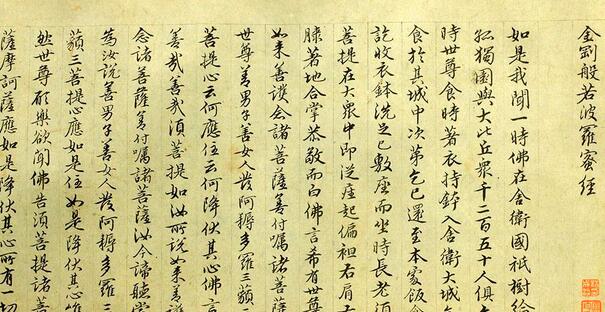 金剛般若波羅蜜經
如是我聞一時佛在舍衛國祇樹給
孤獨園與大比丘眾千二百五十人俱
時世尊食時著衣持鉢入舍衛大城
食於其城中次第乞已還至本處飯食
訖收衣鉢洗足已敷座而坐時長老須
菩提在大眾中即從座起偏袒右肩右
膝著地合掌恭敬而白佛言希有世尊
如來善護念諸菩薩善付囑諸菩薩
世尊善男子善女人發阿耨多羅三藐三
菩提心云何應住云何降伏其心佛言
善哉善哉須菩提如汝所說如來善護
念諸菩薩善付囑諸菩薩汝今諦聽當
為汝說善男子善女人發阿耨多羅三
藐三菩提心應如是住如是降伏其心唯
然世尊願樂欲聞佛告須菩提諸菩
薩摩訶薩應如是降伏其心所有一切